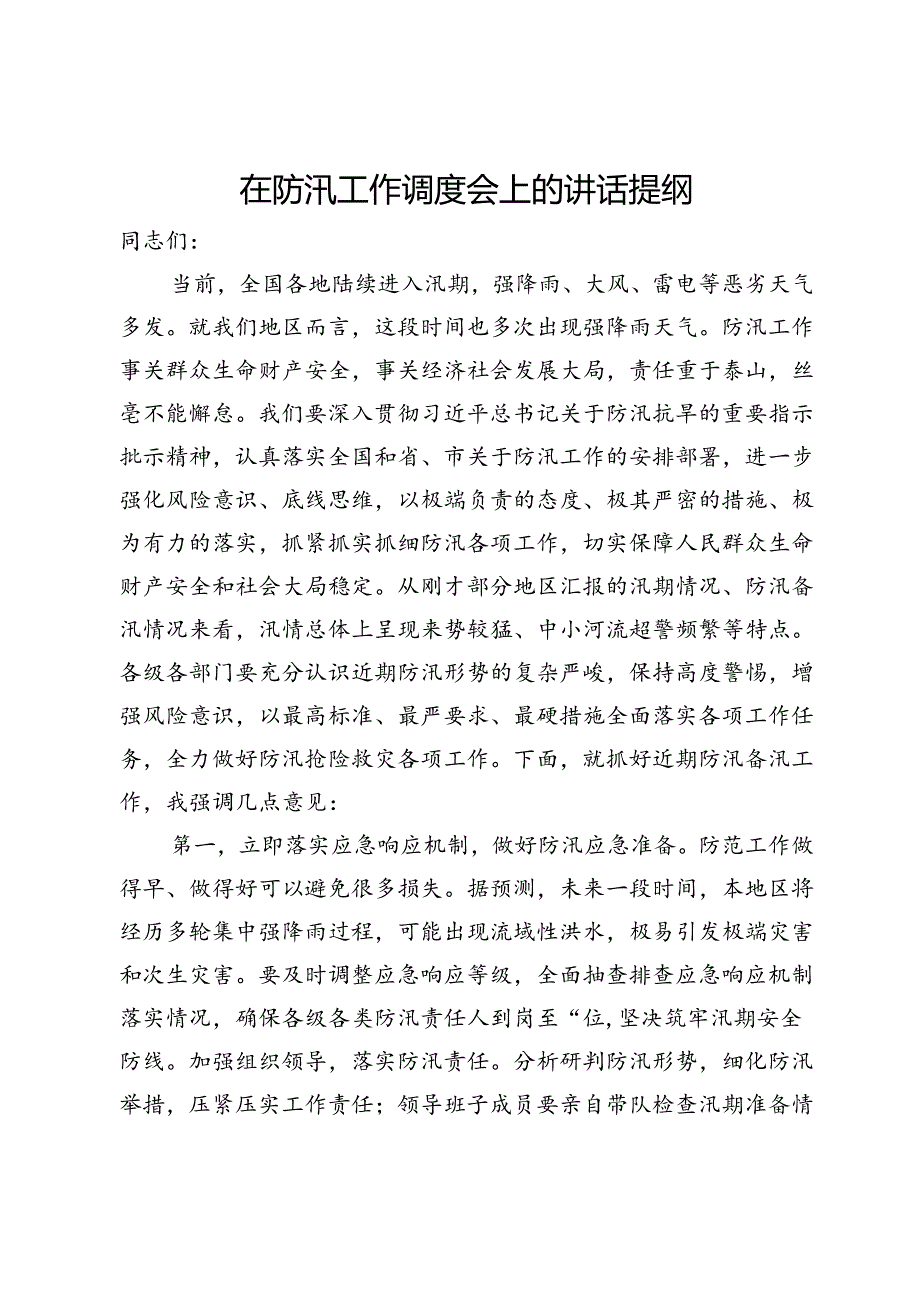 在防汛工作调度会上的讲话提纲
同志们：
当前，全国各地陆续进入汛期，强降雨、大风、雷电等恶劣天气
多发。就我们地区而言，这段时间也多次出现强降雨天气。防汛工作
事关群众生命财产安全，事关经济社会发展大局，责任重于泰山，丝
毫不能懈怠。我们要深入贯彻习近平总书记关于防汛抗旱的重要指示
批示精神，认真落实全国和省、市关于防汛工作的安排部署，进一步
强化风险意识、底线思维，以极端负责的态度、极其严密的措施、极
为有力的落实，抓紧抓实抓细防汛各项工作，切实保障人民群众生命
财产安全和社会大局稳定。从刚才部分地区汇报的汛期情况、防汛备
汛情况来看，汛情总体上呈现来势较猛、中小河流超警频繁等特点。
各级各部门要充分认识近期防汛形势的复杂严峻，保持高度警惕，增
强风险意识，以最高标准、最严要求、最硬措施全面落实各项工作任
务，全力做好防汛抢险救灾各项工作。下面，就抓好近期防汛备汛工
作，我强调几点意见：
第一，立即落实应急响应机制，做好防汛应急准备。防范工作做
得早、做得好可以避免很多损失。据预测，未来一段时间，本地区将
经历多轮集中强降雨过程，可能出现流域性洪水，极易引发极端灾害
和次生灾害。要及时调整应急响应等级，全面抽查排查应急响应机制
落实情况，确保各级各类防汛责任人到岗至“位,坚决筑牢汛期安全
防线。加强组织领导，落实防汛责任。分析研判防汛形势，细化防汛
举措，压紧压实工作责任；领导班子成员要亲自带队检查汛期准备情